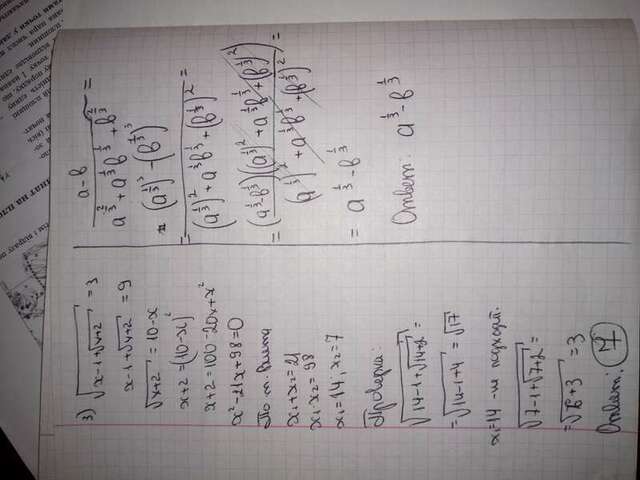 3) √(x-1+√(x+2)) = 3
x-1+√(x+2) = 9
√(x+2) = 10-x
x+2 = (10-x)²
x+2 = 100-20x+x²
x²-21x+98=0
По т. Виета
x₁+x₂=21
x₁·x₂=98
x₁=14; x₂=7
Проверка:
√(14-1+√(14+2)) =
=√(14-1+4) = √17
x₁=14 - не подходит.
√(7-1+√(7+2)) =
=√(6+3) = 3
Ответ: 7
(a-b)/(a^(2/3)+a^(1/3)b^(1/3)+b^(2/3)) =
= ((a^(1/3))³-(b^(1/3))³)/((a^(1/3))²+a^(1/3)b^(1/3)+(b^(1/3))²) =
= (a^(1/3)-b^(1/3))((a^(1/3))²+a^(1/3)b^(1/3)+(b^(1/3))²)/((a^(1/3))²+a^(1/3)b^(1/3)+(b^(1/3))²) =
= a^(1/3)-b^(1/3)
Ответ: a^(1/3)-b^(1/3)